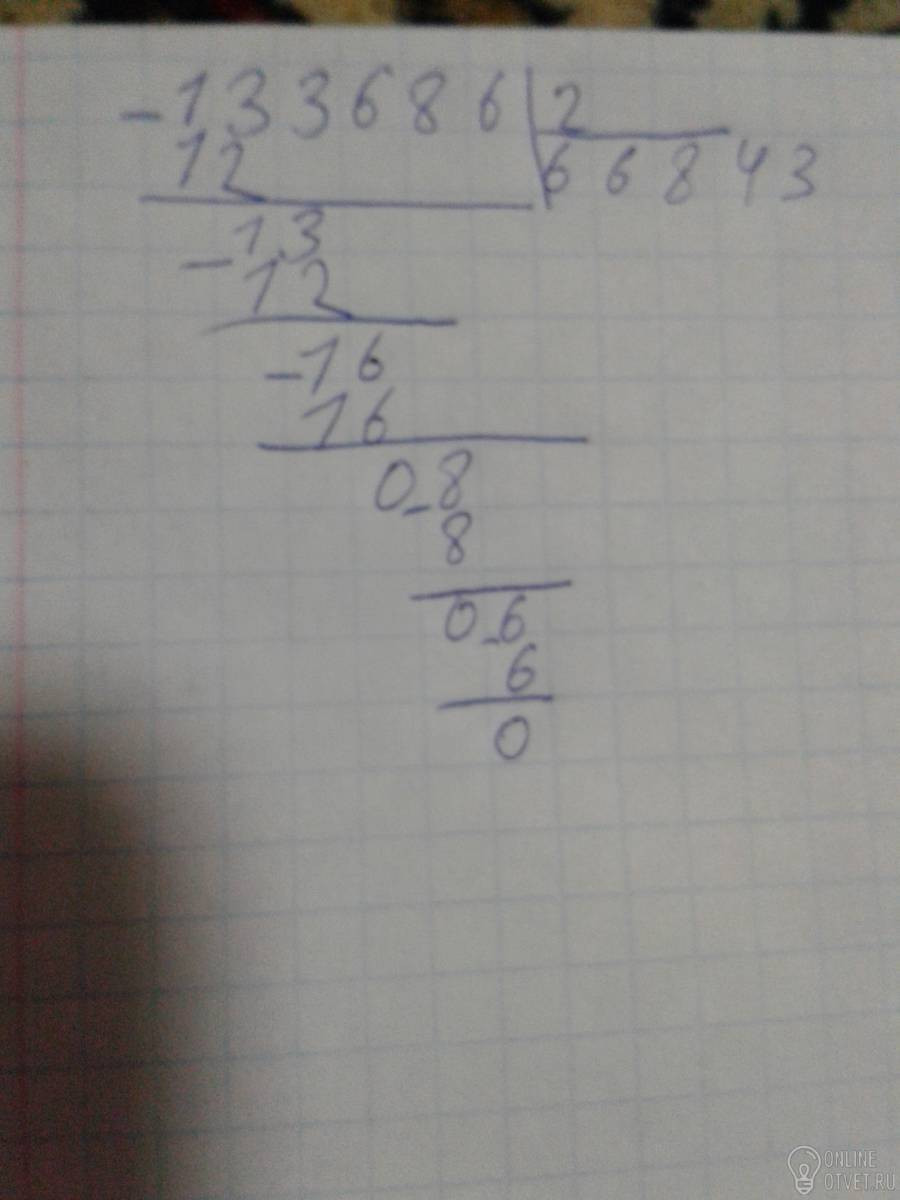 -133686 | 2
12 66843
-13
12
-16
16
0-8
8
0-6
6
0
ONLINE
OTVET.RU